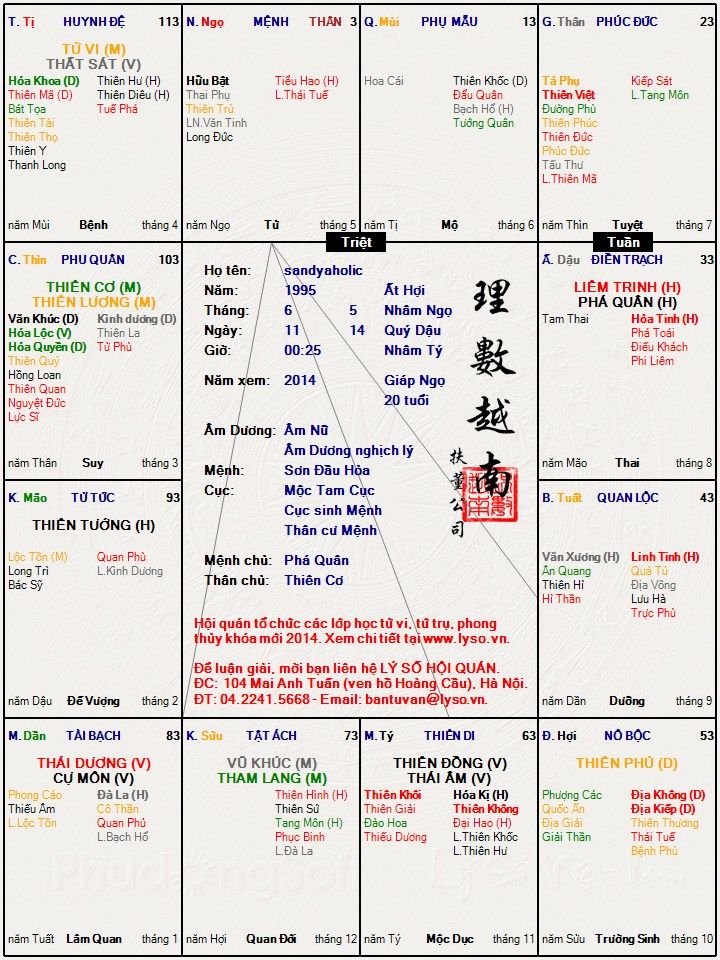 T. Tị HUYNH ĐỆ 113
TỬ VI (M)
THẤT SÁT (V)
Hóa Khoa (D) Thiên Hư (H)
Thiên Mã (D) Thiên Diêu (H)
Bát Tọa Tuế Phá
Thiên Tài
Thiên Thọ
Thiên Y
Thanh Long
năm Mùi Bệnh tháng 4
N. Ngọ MỆNH THÂN 3
Hữu Bật Tiểu Hao (H)
Thai Phụ L.Thái Tuế
Thiên Trù
LN.Văn Tinh
Long Đức
năm Ngọ Tử tháng 5
Q. Mùi PHỤ MẪU 13
Hoa Cái Thiên Khốc (D)
Đẩu Quân
Bạch Hổ (H)
Tướng Quân
năm Tị Mộ tháng 6
G. Thân PHÚC ĐỨC 23
Tả Phụ Kiếp Sát
Thiên Việt L.Tang Môn
Đường Phù
Thiên Phúc
Thiên Đức
Phúc Đức
Tấu Thư
L.Thiên Mã
năm Thìn Tuyệt tháng 7
Triệt
Tuần
C. Thìn PHU QUÂN 103
THIÊN CƠ (M)
THIÊN LƯƠNG (M)
Văn Khúc (D) Kình dương (D)
Hóa Lộc (V) Thiên La
Hóa Quyền (D) Tử Phù
Thiên Quý
Hồng Loan
Thiên Quan
Nguyệt Đức
Lực Sĩ
năm Thân Suy tháng 3
Họ tên: sandyaholic
Năm: 1995 Ất Hợi
Tháng: 6 5 Nhâm Ngọ
Ngày: 11 14 Quý Dậu
Giờ: 00:25 Nhâm Tý
Năm xem: 2014 Giáp Ngọ
20 tuổi
Âm Dương: Âm Nữ
Âm Dương nghịch lý
Mệnh: Sơn Đầu Hỏa
Cục: Mộc Tam Cục
Cục sinh Mệnh
Thân cư Mệnh
Mệnh chủ: Phá Quân
Thân chủ: Thiên Cơ
理數越南
扶董公司
Hội quán tổ chức các lớp học tử vi, tứ trụ, phong
thủy khóa mới 2014. Xem chi tiết tại www.lyso.vn.
Để luận giải, mời bạn liên hệ LÝ SỐ HỘI QUÁN.
ĐC: 104 Mai Anh Tuấn (ven hồ Hoàng Cầu), Hà Nội.
ĐT: 04.2241.5668 - Email: bantuvan@lyso.vn.
Ấ. Dậu ĐIỀN TRẠCH 33
LIÊM TRINH (H)
PHÁ QUÂN (H)
Tam Thai Hỏa Tinh (H)
Phá Toái
Điếu Khách
Phi Liêm
năm Mão Thai tháng 8
K. Mão TỬ TỨC 93
THIÊN TƯỚNG (H)
Lộc Tồn (M) Quan Phù
Long Trì L.Kình Dương
Bác Sỹ
năm Dậu Đế Vượng tháng 2
B. Tuất QUAN LỘC 43
Văn Xương (H) Linh Tinh (H)
Ân Quang Quả Tú
Thiên Hỉ Địa Võng
Hỉ Thần Lưu Hà
Trực Phù
năm Dần Dưỡng tháng 9
M. Dần TÀI BẠCH 83
THÁI DƯƠNG (V)
CỰ MÔN (V)
Phong Cáo Đà La (H)
Thiếu Âm Cô Thần
L.Lộc Tồn Quan Phủ
L.Bạch Hổ
năm Tuất Lâm Quan tháng 1
K. Sửu TẬT ÁCH 73
VŨ KHÚC (M)
THAM LANG (M)
Thiên Hình (H)
Thiên Sứ
Tang Môn (H)
Phục Binh
L.Đà La
năm Hợi Quan Đới tháng 12
M. Tý THIÊN DI 63
THIÊN ĐỒNG (V)
THÁI ÂM (V)
Thiên Khôi Hóa Kị (H)
Thiên Giải Thiên Không
Đào Hoa Đại Hao (H)
Thiếu Dương L.Thiên Khốc
L.Thiên Hư
năm Tý Mộc Dục tháng 11
Đ. Hợi NÔ BỘC 53
THIÊN PHỦ (D)
Phượng Các Địa Không (D)
Quốc Ấn Địa Kiếp (D)
Địa Giải Thiên Thương
Giải Thần Thái Tuế
Bệnh Phù
năm Sửu Trường Sinh tháng 10
Phudongsoft
Lý Số Việt Nam